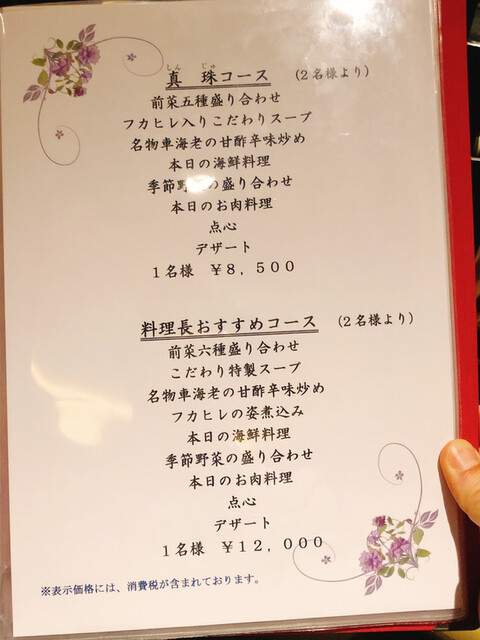 しん じゅ
真 珠コース (2名様より)
前菜五種盛り合わせ
フカヒレ入りこだわりスープ
名物車海老の甘酢辛味炒め
本日の海鮮料理
季節野菜の盛り合わせ
本日のお肉料理
点心
デザート
1名様 ¥8,500
料理長おすすめコース (2名様より)
前菜六種盛り合わせ
こだわり特製スープ
名物車海老の甘酢辛味炒め
フカヒレの姿煮込み
本日の海鮮料理
季節野菜の盛り合わせ
本日のお肉料理
点心
デザート
1名様 ¥12,000
※表示価格には、消費税が含まれております。